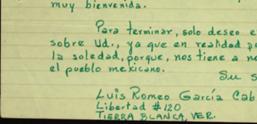 muy bienvenida.
Para terminar, solo deseo e
sobre Ud., ya que en realidad pe
la soledad, porque, nos tiene a ne
el pueblo mexicano.
Su s
Luis Romeo García Cab
Libertad #120
TIERRA BLANCA, VER.